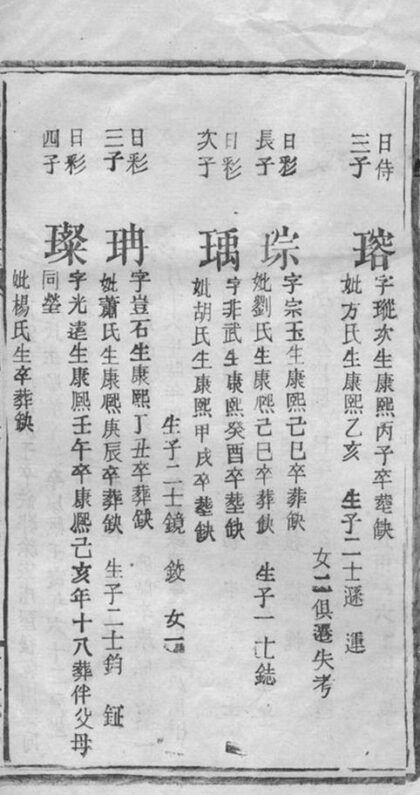 日侍
三子
瑢
字瑽次生康熙丙子卒塟缺
妣方氏生康熙乙亥 生子二士遜 運
女二俱遷失考
日彩
長子
琮
字宗玉生康熙己巳卒葬缺
妣劉氏生康熙己巳卒葬缺 生子一士鋕
日彩
次子
瑀
字非武生康熙癸酉卒塟缺
妣胡氏生康熙甲戌卒塟缺
生子二士鏡 鉸 女一
日彩
三子
珃
字豈石生康熙丁丑卒葬缺
妣蕭氏生康熙庚辰卒葬缺 生子二士鈞 鉦
日彩
四子
璨
字光遠生康熙壬午卒康熙己亥年十八葬伴父母
同塋
妣楊氏生卒葬缺